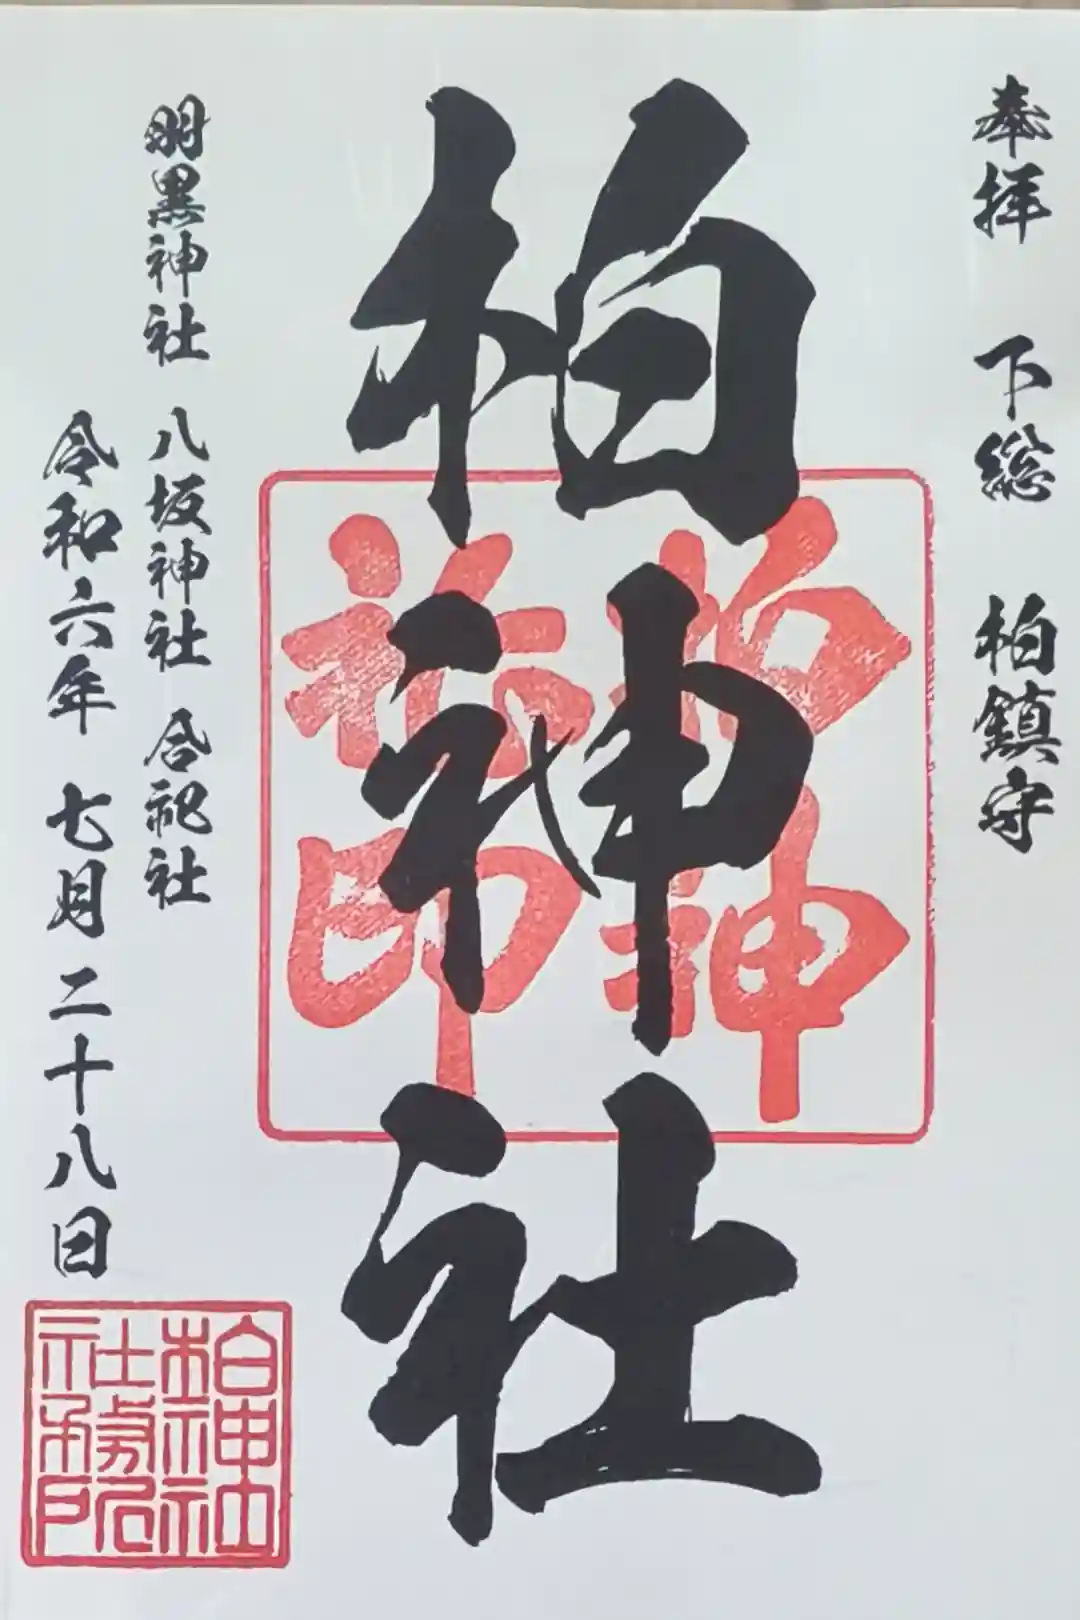 奉拝 下総 柏鎮守
柏神社
柏神
社印
羽黒神社 八坂神社 合祀社
令和六年 七月二十八日
柏神社
社務所